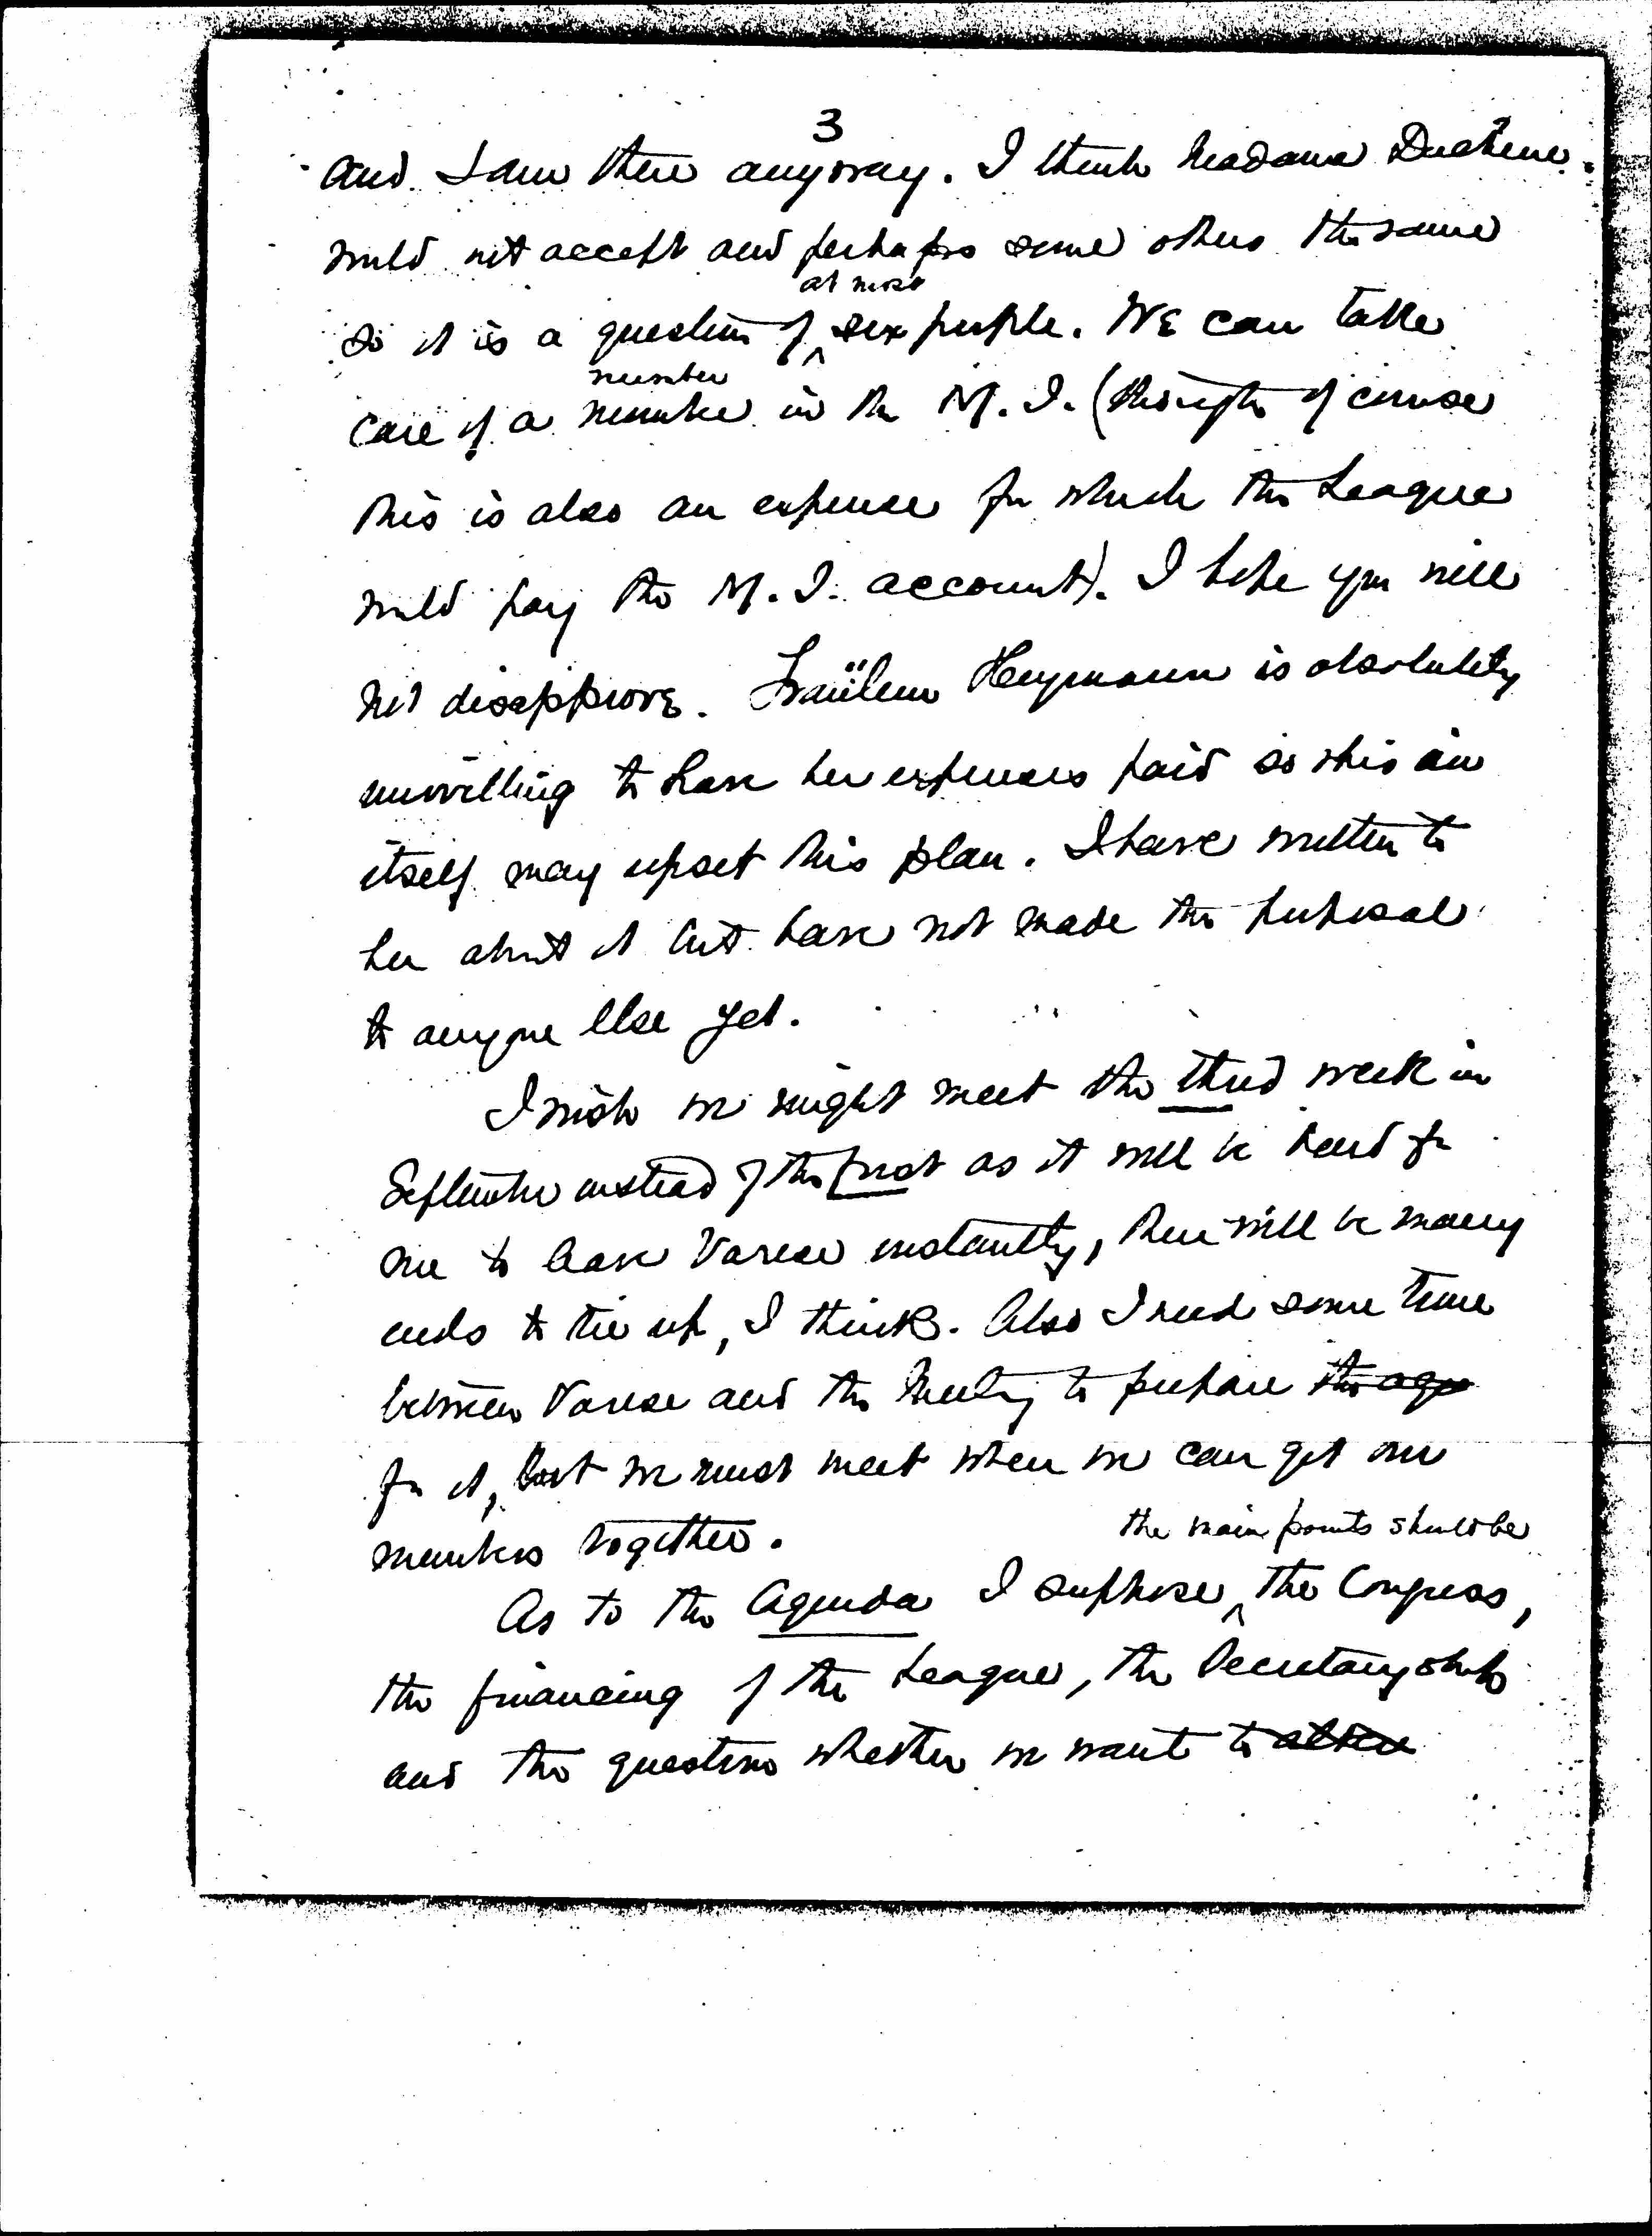 3
and I am there anyway. I think Madame Duchêne
would not accept and perhaps some others the same
at most
So it is a question of ^ six people. We can take
number
care of a number in the M.I. (though of course
this is also an expense for which the League
would pay the M.I. account). I hope you will
not disapprove. Fraülein Heymann is absolutely
unwilling to have her expenses paid so this in
itself may upset this plan. I have written to
her about it but have not made the proposal
to anyone else yet.
I wish we might meet the third week in
September instead of the first as it will be hard for
me to leave Varese instantly, there will be many
ends to tie up, I think. Also I need some time
between Varese and the Meeting to prepare the age
for it, but we must meet when we can get our
members together.
the main points should be
As to the Agenda I suppose ^ the Congress,
the financing of the League, the Secretaryship
and the question whether we want to